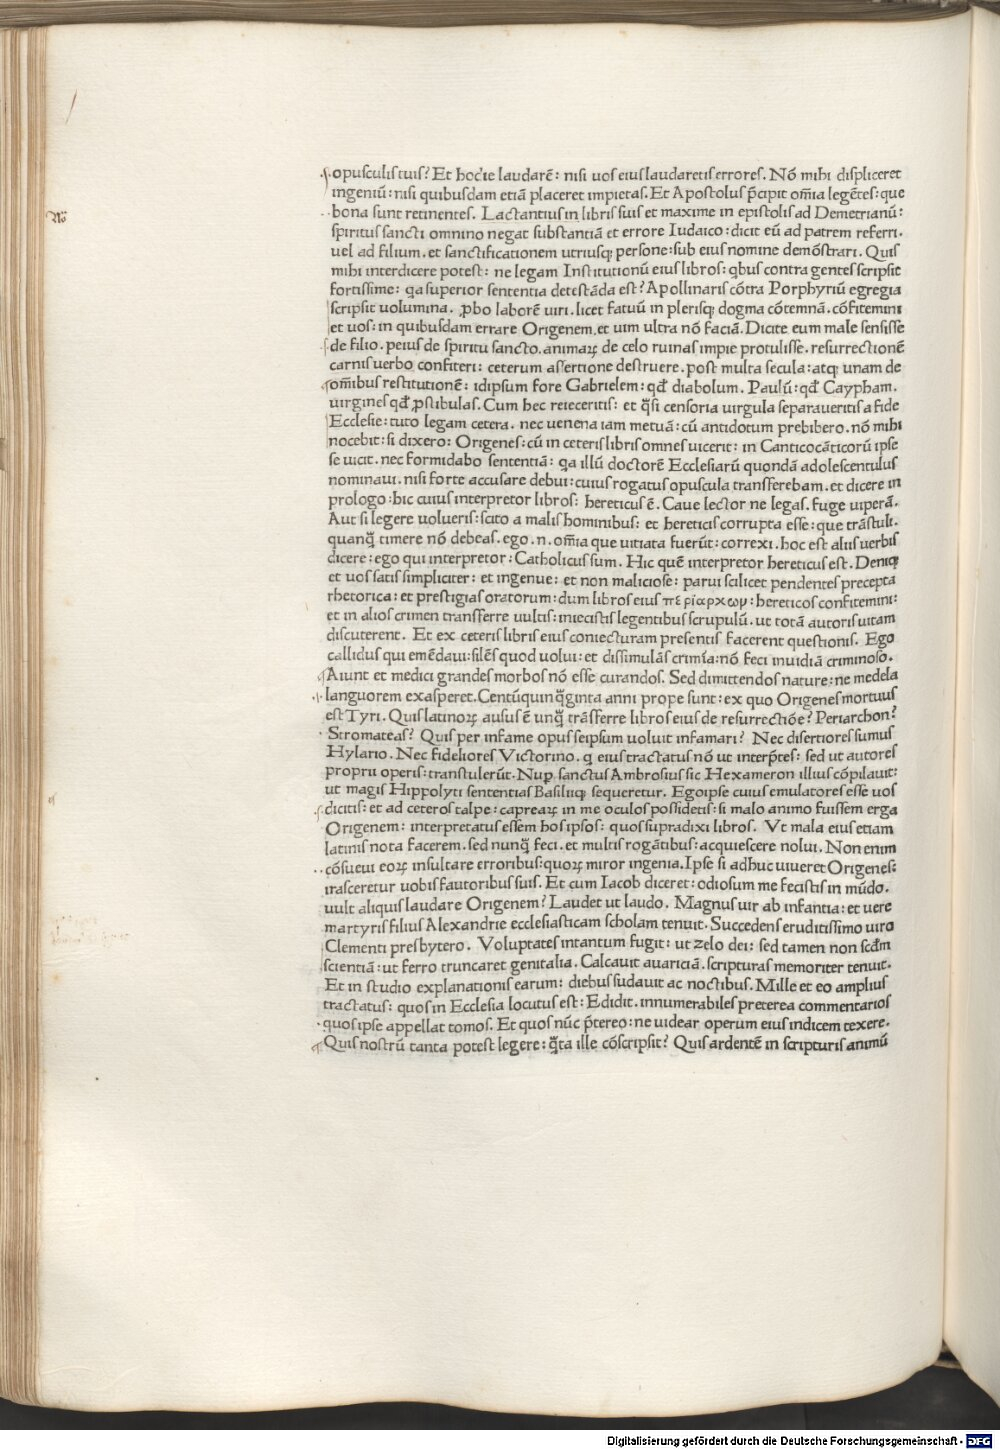 opusculis tuis? Et hodie laudarē: nisi uos eius laudaretis errores. Nō mihi displiceret
ingeniū: nisi quibusdam etiā placeret impietas. Et Apostolus p̄cipit oīa legētes: que
bona sunt retinentes. Lactantius in libris suis et maxime in epistolis ad Demetrianū:
spiritus sancti omnino negat substantiā et errore Iudaico: dicit eū ad patrem referri.
uel ad filium. et sanctificationem utriusq; persone: sub eius nomine demōstrari. Quis
mihi interdicere potest: ne legam Institutionū eius libros: qbus contra gentes scripsit
fortissime: qa superior sententia detestāda est? Apollinaris cōtra Porphyriū egregia
scripsit uolumina. ꝓbo laborē uiri. licet fatuū in plerisq; dogma cōtemnā. cōfitemini
et uos: in quibusdam errare Origenem. et uim ultra nō faciā. Dicite eum male sensisse
de filio. peius de spiritu sancto. animaꝝ de celo ruinas impie protulisse. resurrectionē
carnis uerbo confiteri: ceterum assertione destruere. post multa secula: atq; unam de
oībus restitutionē: idipsum fore Gabrielem: qd̄ diabolum. Paulū: qd̄ Caypham.
uirgines qd̄ ꝓstibulas. Cum hec reieceritis: et q̄si censoria uirgula separaueritis a fide
Ecclesie: tuto legam cetera. nec uenena iam metuā: cū antidotum prebibero. nō mihi
nocebit: si dixero: Origenes: cū in ceteris libris omnes uicerit: in Canticocāticorū ipse
se uicit. nec formidabo sententiā: qa illū doctorē Ecclesiarū quondā adolescentulus
nominaui. nisi forte accusare debui: cuius rogatus opuscula transferebam. et dicere in
prologo: hic cuius interpretor libros: hereticus ē. Caue lector ne legas. fuge uiperā.
Aut si legere uolueris: scito a malis hominibus: et hereticis corrupta esse: que trāstuli.
quanq̄ timere nō debeas. ego .n. oīa que uitiata fuerūt: correxi. hoc est aliis uerbis
dicere: ego qui interpretor: Catholicus sum. Hic quē interpretor hereticus est. Deniq;
et uos satis simpliciter: et ingenue: et non maliciose: parui scilicet pendentes precepta
rhetorica: et prestigias oratorum: dum libros eius περιαρχωμ: hereticos confitemini:
et in alios crimen transferre uultis: iniecistis legentibus scrupulū. ut totā autoris uitam
discuterent. Et ex ceteris libris eius coniecturam presentis facerent questionis. Ego
callidus qui emēdaui: silēs quod uolui: et dissimulās crimīa: nō feci inuidiā criminoso.
Aiunt et medici grandes morbos nō esse curandos. Sed dimittendos nature: ne medela
languorem exasperet. Centū quinq̄ginta anni prope sunt: ex quo Origenes mortuus
est Tyri. Quis latinoꝝ ausus ē unq̄ trāsferre libros eius de resurrectiōe? Periarchon?
Stromateas? Quis per infame opus seipsum uoluit infamari? Nec disertiores sumus
Hylario. Nec fideliores Victorino. q eius tractatus nō ut interp̄tes: sed ut autores
proprii operis: transtulerūt. Nuꝑ sanctus Ambrosius sic Hexameron illius cōpilauit:
ut magis Hippolyti sententias Basiliiq; sequeretur. Egoipse cuius emulatores esse uos
dicitis: et ad ceteros talpe: capreaꝝ in me oculos possidetis: si malo animo fuissem erga
Origenem: interpretatus essem hos ipsos: quos supradixi libros. Vt mala eius etiam
latinis nota facerem. sed nunq̄ feci. et multis rogātibus: acquiescere nolui. Non enim
cōsueui eoꝝ insultare erroribus: quoꝝ miror ingenia. Ipse si adhuc uiueret Origenes:
irasceretur uobis fautoribus suis. Et cum Iacob diceret: odiosum me fecistis in mūdo.
uult aliquis laudare Origenem? Laudet ut laudo. Magnus uir ab infantia: et uere
martyris filius Alexandrie ecclesiasticam scholam tenuit. Succedens eruditissimo uiro
Clementi presbytero. Voluptates intantum fugit: ut zelo dei: sed tamen non scd̄m
scientiā: ut ferro truncaret genitalia. Calcauit auariciā. scripturas memoriter tenuit.
Et in studio explanationis earum: diebus sudauit ac noctibus. Mille et eo amplius
tractatus: quos in Ecclesia locutus est: Edidit. innumerabiles preterea commentarios
quos ipse appellat tomos. Et quos nūc p̄tereo: ne uidear operum eius indicem texere.
Quis nostrū tanta potest legere: q̄ta ille cōscripsit? Quis ardentē in scripturis animū
Digitalisierung gefördert durch die Deutsche Forschungsgemeinschaft - DFG